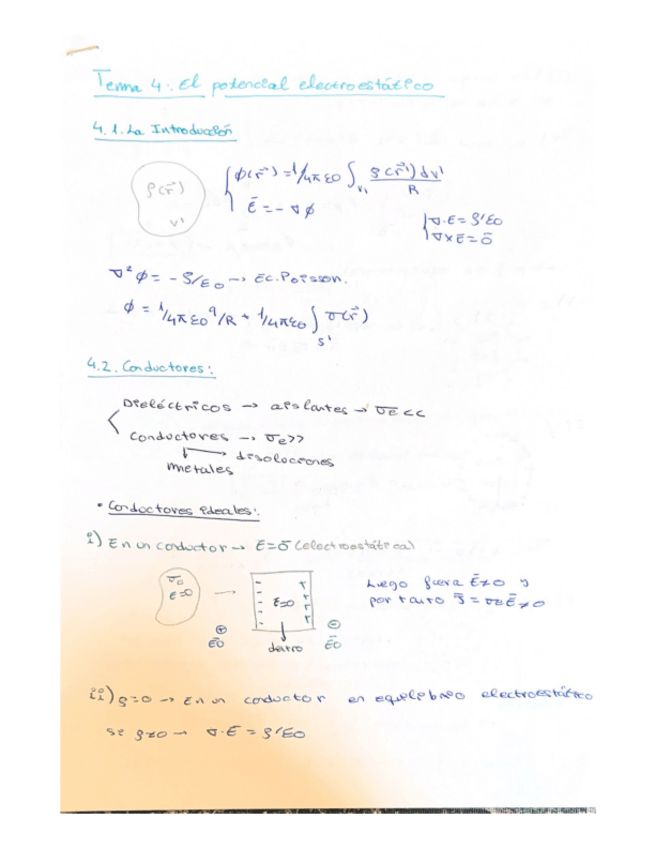 Tema 4: El potencial electroestático
4.1. La Introducción
ρ(r⃗)
V'
φ(r⃗) = 1/4πε0 ∫V' ρ(r⃗') dv' / R
E̅ = -∇φ
∇·E = ρ/ε0
∇×E = 0̅
∇²φ = -ρ/ε0 → Ec. Poisson.
φ = 1/4πε0 q/R + 1/4πε0 ∫S' σ(r⃗)
4.2. Conductores:
Dieléctricos → aislantes → σe <<
Conductores → σe >>
→ disoluciones
metales
• Conductores ideales:
i) En un conductor → E = 0̅ (electroestática)
E=0
E=0
dentro
⊕
E̅0
⊖
E̅0
Luego fuera E̅≠0 y
por tanto J̅ = σe E̅ ≠ 0
ii) ρ=0 → En un conductor en equilibrio electroestático
si ρ≠0 → ∇·E̅ = ρ/ε0